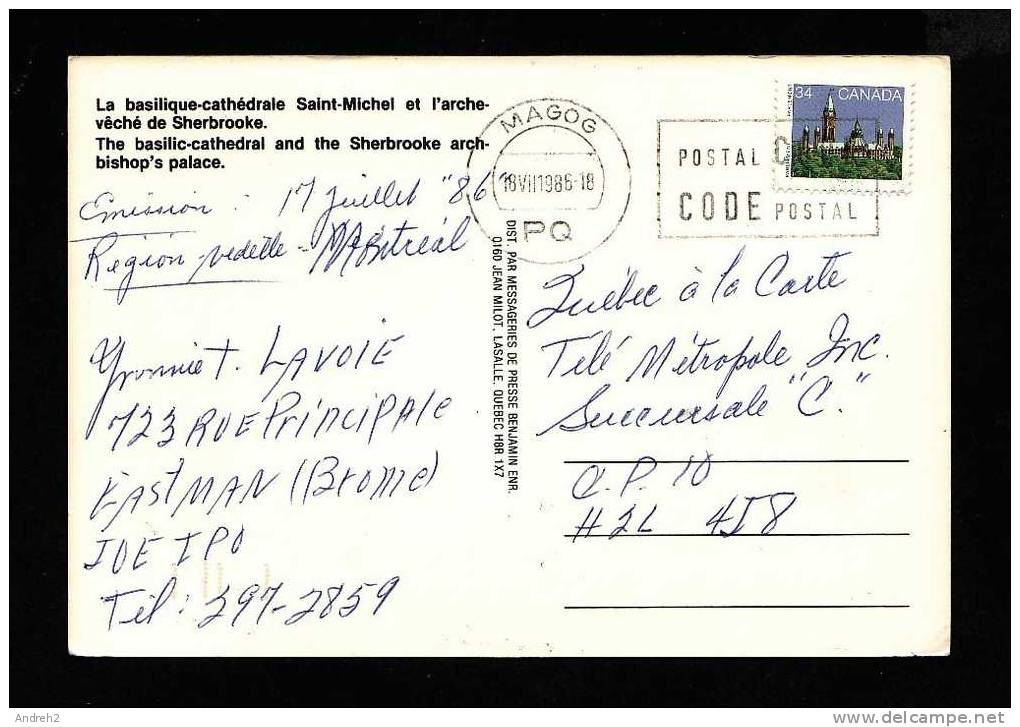 La basilique-cathédrale Saint-Michel et l'arche-
vêché de Sherbrooke.
The basilic-cathedral and the Sherbrooke arch-
bishop's palace.
Emission : 17 juillet "86
Région-vedette - Montréal
T. LAVOIE
723 RUE PrinciPAle
EastMAN (Brome)
JOE IPO
Tél : 297-2859
MAGOG
18VII1986-18
PQ
POSTAL
CODE POSTAL
34 CANADA
DIST. PAR MESSAGERIES DE PRESSE BENJAMIN ENR.
0160 JEAN MILOT, LASALLE, QUEBEC H8R 1X7
Québec à la Carte
Télé Métropole Inc.
Succursale "C."
C.P. 10
H2L 4J8
Andreh2
www.delcampe.net